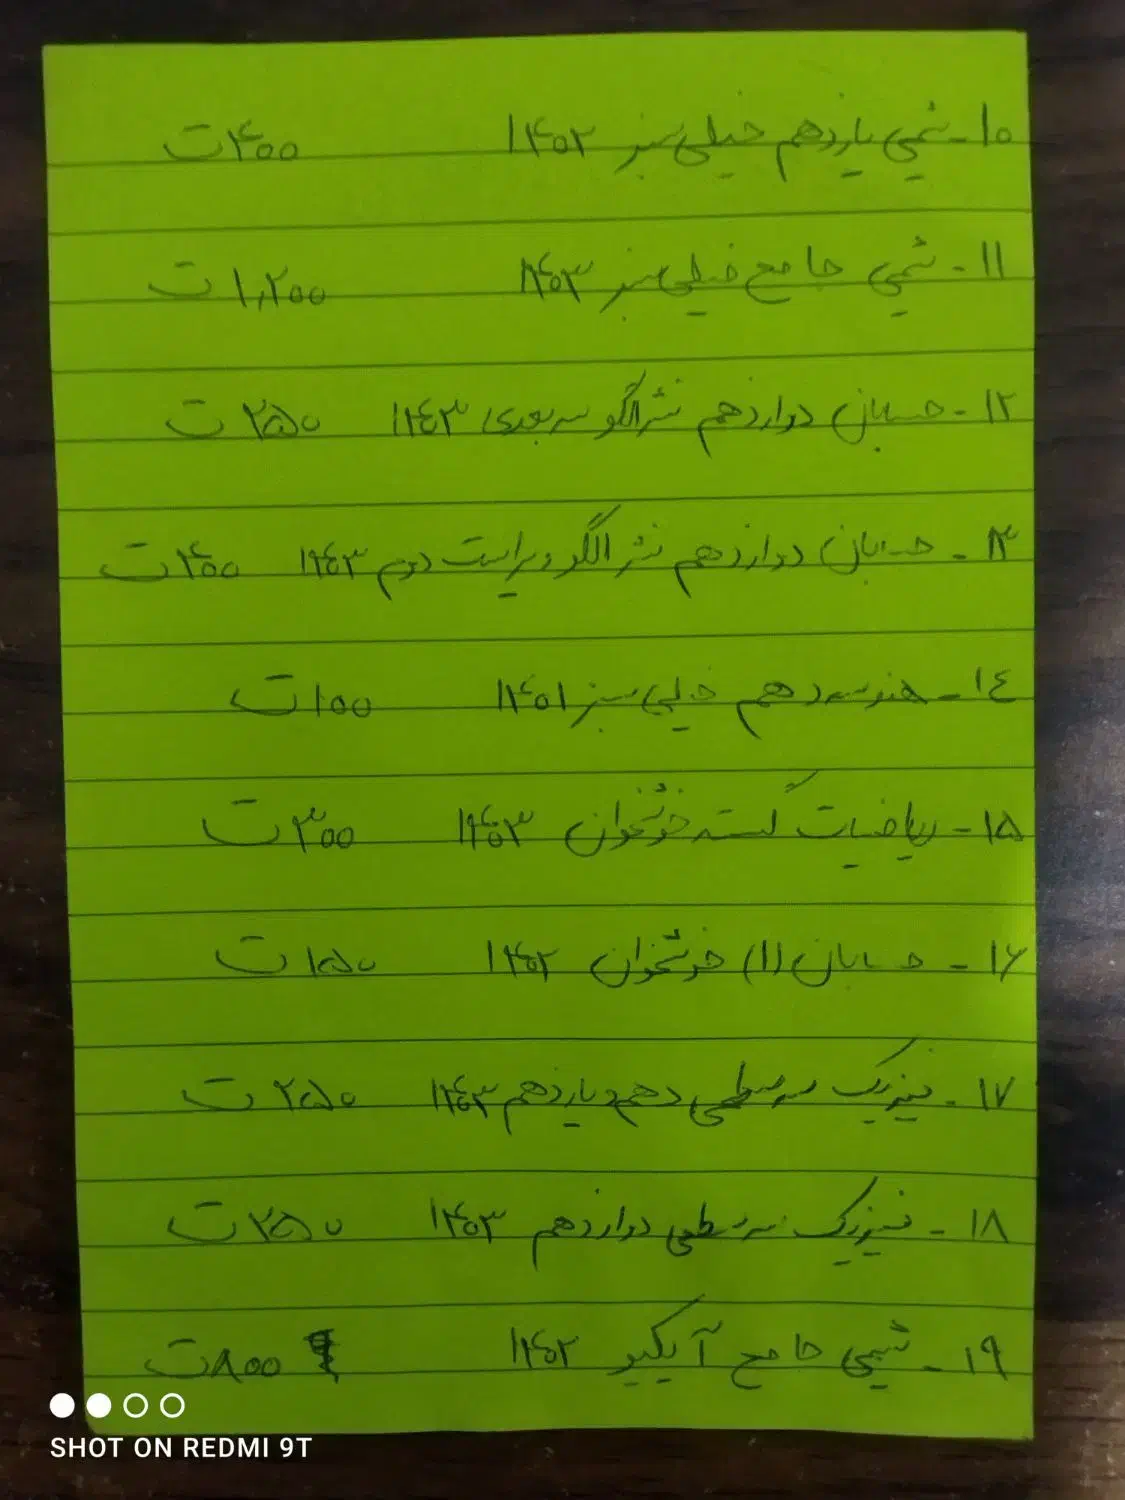 ۱۰- شیمی یازدهم خیلی سبز ۱۴۰۲ ۴۰۰ ت
۱۱- شیمی جامع خیلی سبز ۱۴۰۳ ۱,۲۰۰ ت
۱۲- حسابان دوازدهم نشر الگو سه بعدی ۱۴۰۳ ۲۵۰ ت
۱۳- حسابان دوازدهم نشر الگو ویراست دوم ۱۴۰۳ ۴۰۰ ت
۱۴- هندسه دهم خیلی سبز ۱۴۰۱ ۱۰۰ ت
۱۵- ریاضیات گسسته خوشخوان ۱۴۰۳ ۳۰۰ ت
۱۶- حسابان (۱) خوشخوان ۱۴۰۲ ۱۵۰ ت
۱۷- فیزیک سه سطحی دهم و یازدهم ۱۴۰۳ ۲۵۰ ت
۱۸- فیزیک سه سطحی دوازدهم ۱۴۰۳ ۲۵۰ ت
۱۹- شیمی جامع آیکیو ۱۴۰۲ ۸۰۰ ت
SHOT ON REDMI 9T